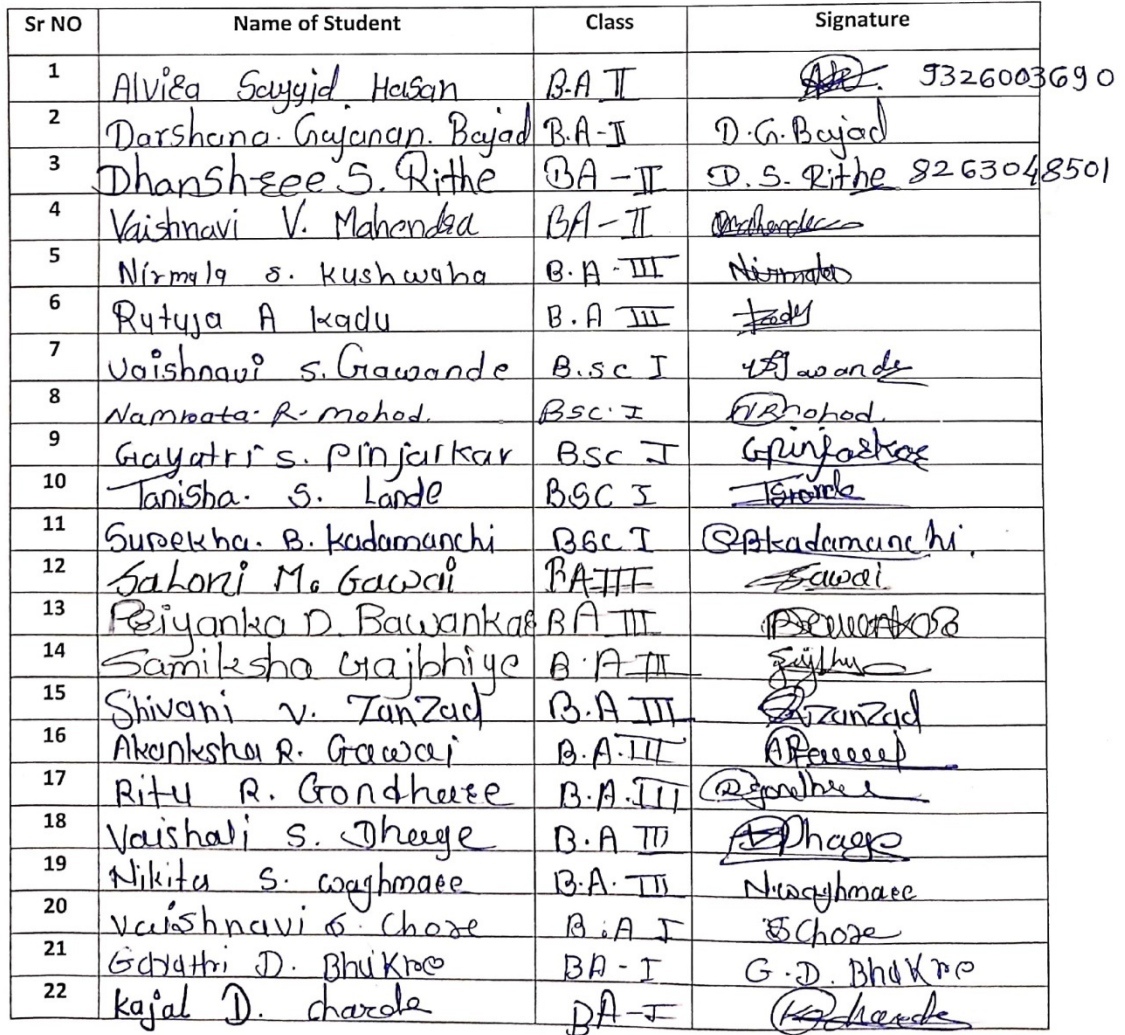 Sr NO Name of Student Class Signature
1 Alviea Sayyid Hasan B.A II 9326003690
2 Darshana. Gajanan. Bajad B.A-II D.G.Bajad
3 Dhanshree S. Rithe BA-II D.S. Rithe 8263048501
4 Vaishnavi V. Mahendra BA-II
5 Nirmala S. Kushwaha B.A-III Nirmala
6 Rutuja A Kadu B.A III
7 Vaishnavi S. Gawande B.sc I
8 Namrata. R. Mohod. Bsc.I NRMohod.
9 Gayatri S. Pinjarkar BSC I GPinjarkar
10 Tanisha. S. Lande BSC I
11 Surekha. B. Kadamanchi BSC I SBKadamanchi.
12 Saloni M. Gawai BA III Gawai
13 Priyanka D. Bawankar BA III
14 Samiksha Gajbhiye B.A III
15 Shivani V. Zanzad B.A III Zanzad
16 Akanksha R. Gawai B.A.III
17 Ritu R. Gondhare B.A.III
18 Vaishali S. Dhage B.A III Dhage
19 Nikita S. Waghmare B.A. III N.waghmare
20 Vaishnavi S. Chore B.A I SChore
21 Gayathri D. Bhukre BA-I G.D. Bhukre
22 Kajal D. Charde BA-I